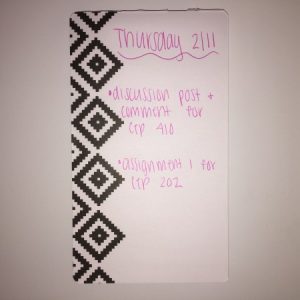 Thursday 2/11
•discussion post +
comment for
CTP 410
•assignment 1 for
CTP 202